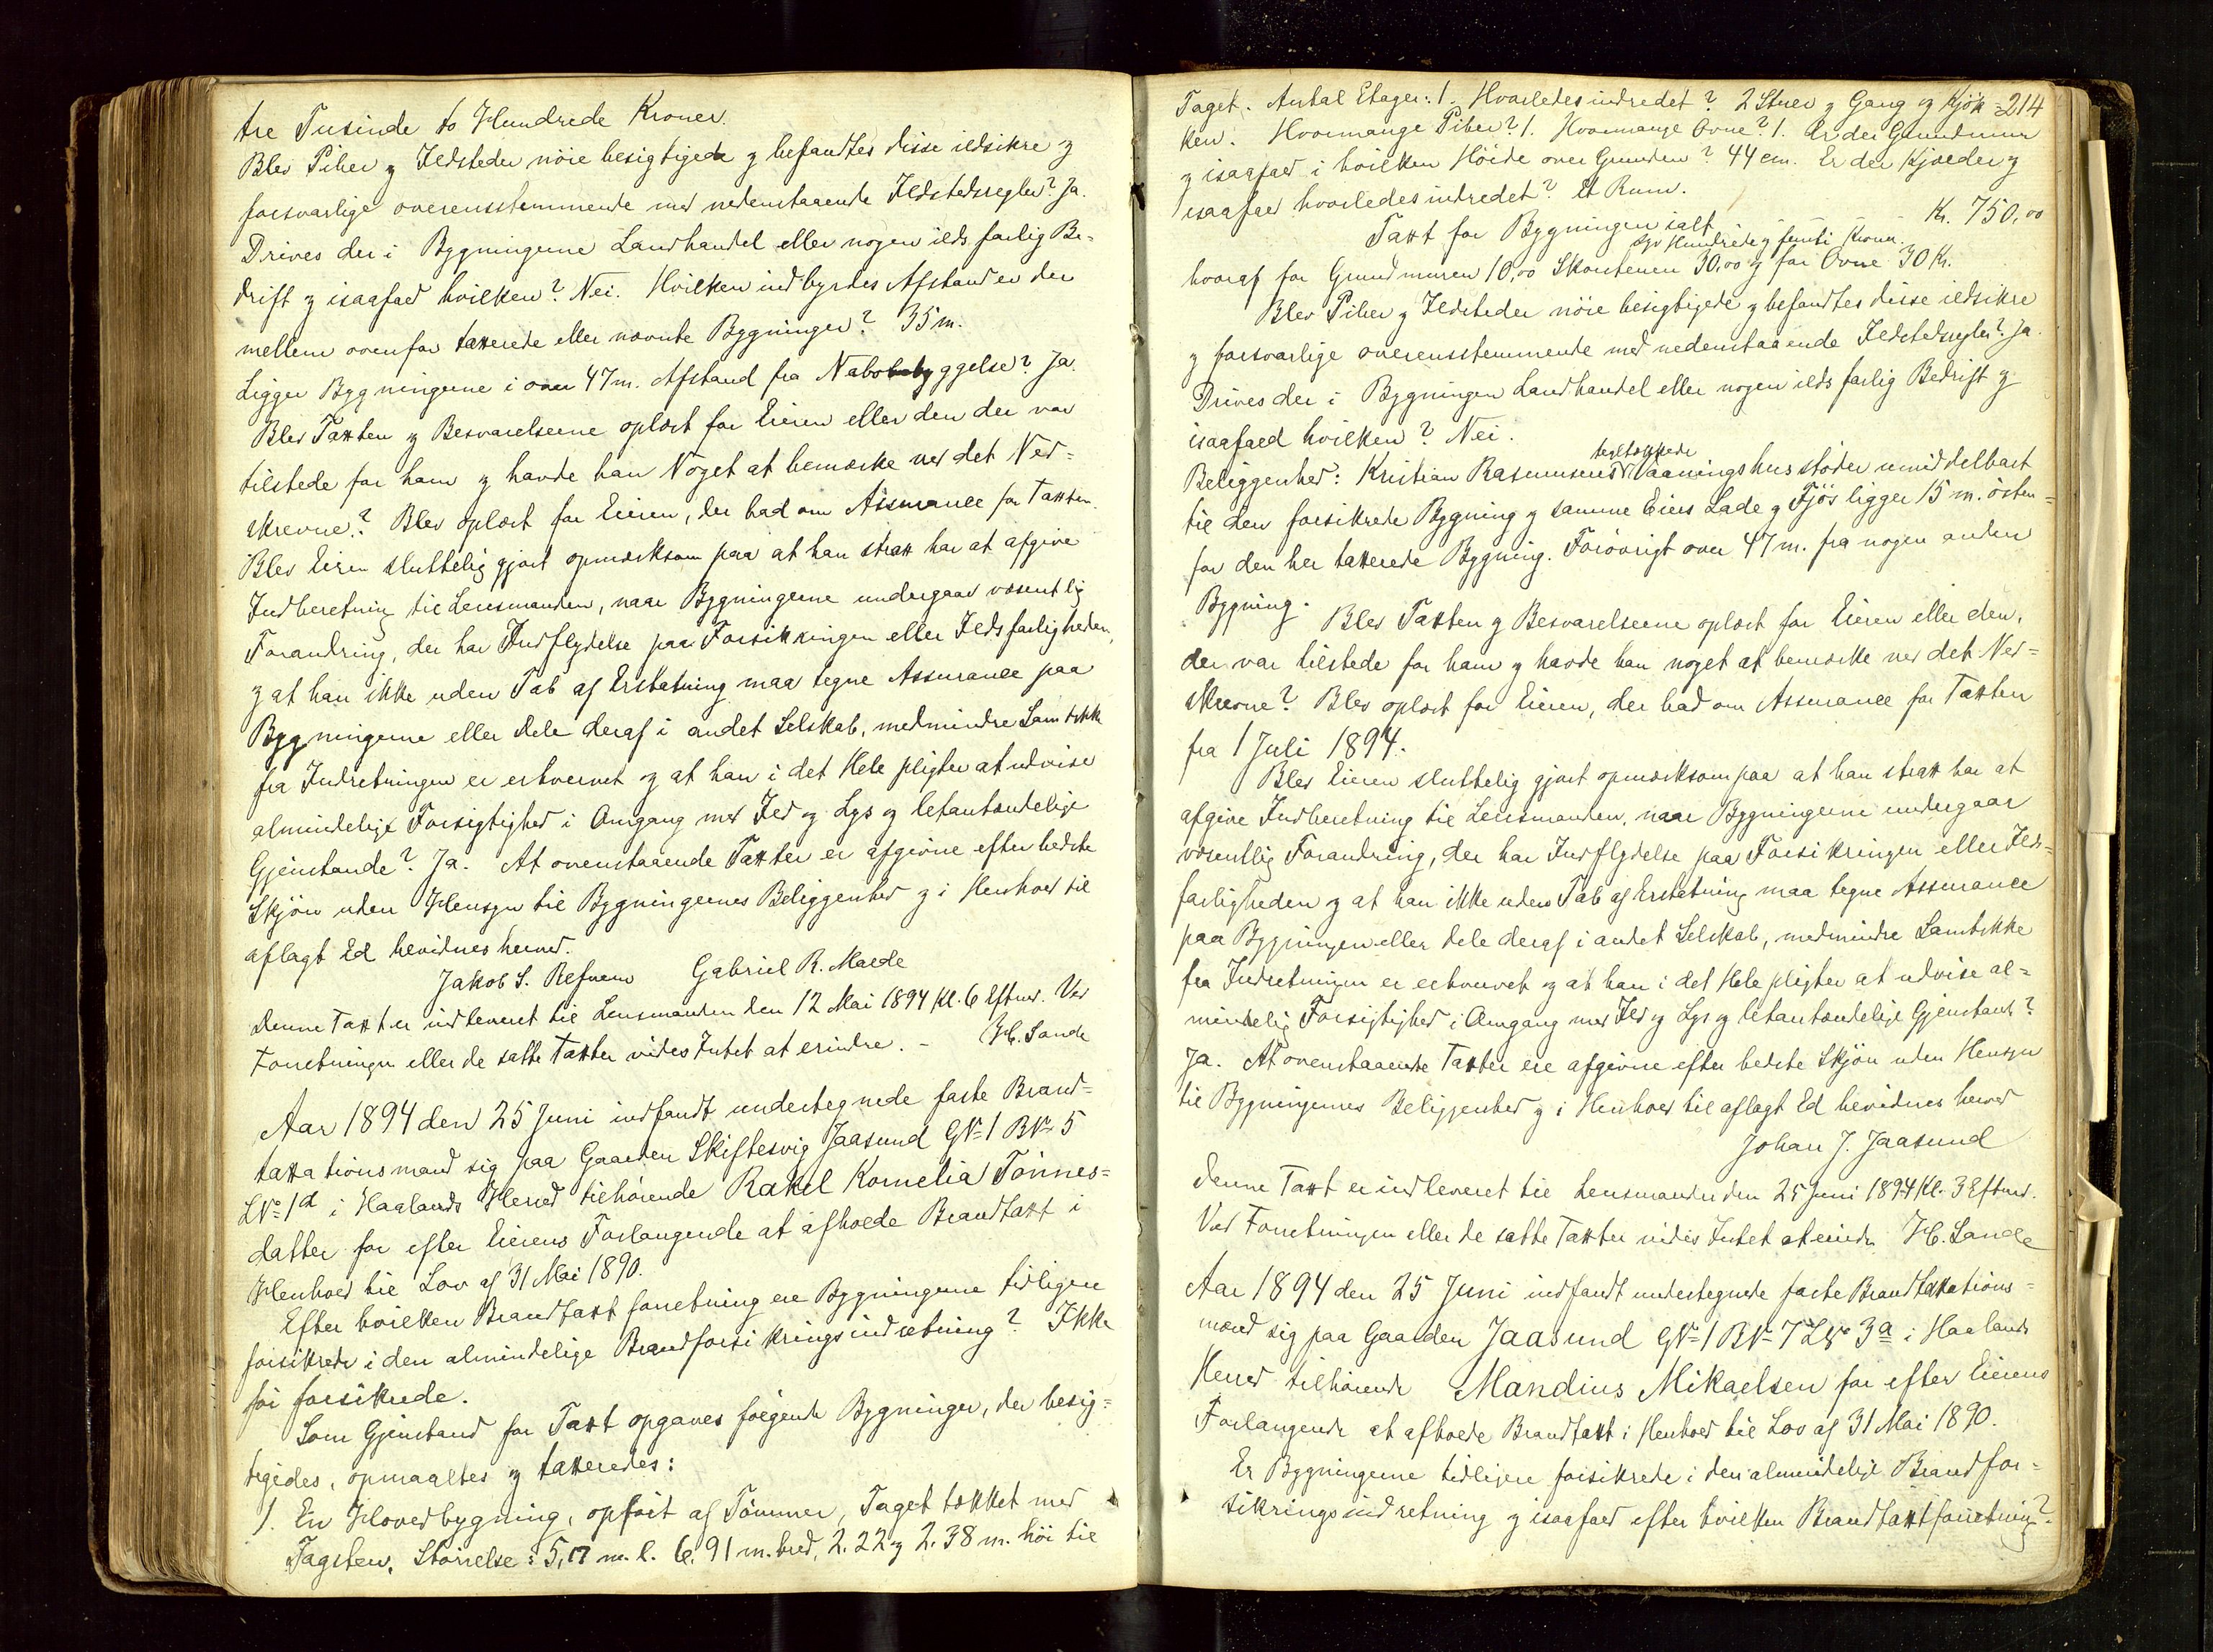 tre Tusinde to Hundrede Kroner.
Blev Piber og Ildsteder nöie besigtigede og befandtes disse ildsikre og
forsvarlige overensstemmende med nedenstaaende Ildstedsregler? Ja.
Drives der i Bygningerne Landhandel eller nogen ildsfarlig Be-
drift og isaafad hvilken? Nei. Hvilken indbyrdes Afstand er der
mellem ovenfor taxerede eller nævnte Bygninger? 35 m.
Ligger Bygningerne i over 47 m. Afstand fra Nabobebyggelse? Ja.
Blev Taxten og Besvarelserne oplæst for Eieren eller den der var
tilstede for ham og havde han Noget at bemærke ved det Ned-
skrevne? Blev oplæst for Eieren, der bad om Assurance for Taxten.
Blev Eieren sluttelig gjort opmærksom paa at han strax har at afgive
Indberetning til Lensmanden, naar Bygningerne undergaar væsentlig
Forandring, der har Indflydelse paa Forsikringen eller Ildsfarligheden,
og at han ikke uden Tab af Erstatning maa tegne Assurance paa
Bygningerne eller dele deraf i andet Selskab, medmindre Samtykke
fra Indretningen er erhvervet og at han i det Hele pligter at udvise
almindelige Forsigtighed i Omgang med Ild og Lys og letantændelige
Gjenstande? Ja. At ovenstaaende Taxter er afgivne efter bedste
Skjön uden Hensyn til Bygningernes Beliggenhed og i Henhold til
aflagt Ed bevidnes herved.
Jakob S. Refnem Gabriel R. Malde
Denne Taxt er indleveret til Lensmanden den 12 Mai 1894 Kl. 6 Eftmd. Ved
Forretningen eller de satte Taxter vides Intet at erindre. - H. Sande
Aar 1894 den 25 Juni indfandt undertegnede faste Brand-
taxationsmand sig paa Gaarden Skiftesvig Jaasund GNo 1 BNo 5
LNo 1d i Haalands Herred tilhörende Rakel Kornelia Tönnes-
datter for efter Eierens Forlangende at afholde Brandtaxt i
Henhold til Lov af 31 Mai 1890.
Efter hvilken Brandtaxtforretning ere Bygningerne tidligere
forsikrede i den almindelige Brandforsikringsindretning? Ikke
för forsikrede.
Som Gjenstand for Taxt opgaves fölgende Bygninger, der besig-
tigedes, opmaaltes og taxeredes:
1. En Hovedbygning, opfört af Tömmer, Taget tækket med
Tagsten. Störrelse: 5,17 m. l. 6.91 m. bred, 2.22 og 2.38 m. höi til
214
Taget. Antal Etager: 1. Hvorledes indredet? 2 Stuer og Gang og Kjök-
ken. Hvormange Piber? 1. Hvormange Ovne? 1. Er der Grundmur
og isaafad i hvilken Höide over Grunden? 44 cm. Er der Kjælder og
isaafad hvorledes indredet? Et Rum.
Taxt for Bygningen ialt - - - Kr. 750,00
syv Hundrede og femti Kroner.
hvoraf for Grundmuren 10,00 Skorstenen 30,00 og for Ovne 30 Kr.
Blev Piber og Ildsteder nöie besigtigede og befandtes disse ildsikre
og forsvarlige overensstemmende med nedenstaaende Ildstedsregler? Ja.
Drives der i Bygningen Landhandel eller nogen ildsfarlig Bedrift og
isaafald hvilken? Nei.
tegltækkede
Beliggenhed: Kristian Rasmussens Vaaningshus stöder umiddelbart
til den forsikrede Bygning og samme Eiers Lade og Fjös ligger 15 m. östen-
for den her taxerede Bygning. Forövrigt over 47 m. fra nogen anden
Bygning.
Blev Taxten og Besvarelserne oplæst for Eieren eller den,
der var tilstede for ham og havde han noget at bemærke ved det Ned-
skrevne? Blev oplæst for Eieren, der bad om Assurance for Taxten
fra 1 Juli 1894.
Blev Eieren sluttelig gjort opmærksom paa at han strax har at
afgive Indberetning til Lensmanden, naar Bygningerne undergaar
væsentlig Forandring, der har Indflydelse paa Forsikringen eller Ilds-
farligheden og at han ikke uden Tab af Erstatning maa tegne Assurance
paa Bygningen eller dele deraf i andet Selskab, medmindre Samtykke
fra Indretningen er erhvervet og at han i det Hele pligter at udvise al-
mindelig Forsigtighed i Omgang med Ild og Lys og letantændelige Gjenstand?
Ja. At ovenstaaende Taxter ere afgivne efter bedste Skjön uden Hensyn
til Bygningernes Beliggenhed og i Henhold til aflagt Ed bevidnes herved
Johan J. Jaasund
Denne Taxt er indleveret til Lensmanden den 25 Juni 1894 Kl. 3 Eftmd.
Ved Forretningen eller de satte Taxter vides Intet at erindre H. Sande
Aar 1894 den 25 Juni indfandt undertegnede faste Brandtaxations-
mænd sig paa Gaarden Jaasund GNo 1 BNo 7 LNo 3a i Haalands
Herred tilhörende Mandius Mikaelsen for efter Eierens
Forlangende at afholde Brandtaxt i Henhold til Lov af 31 Mai 1890.
Er Bygningerne tidligere forsikrede i den almindelige Brandfor-
sikringsindretning og isaafad efter hvilken Brandtaxtforretning?